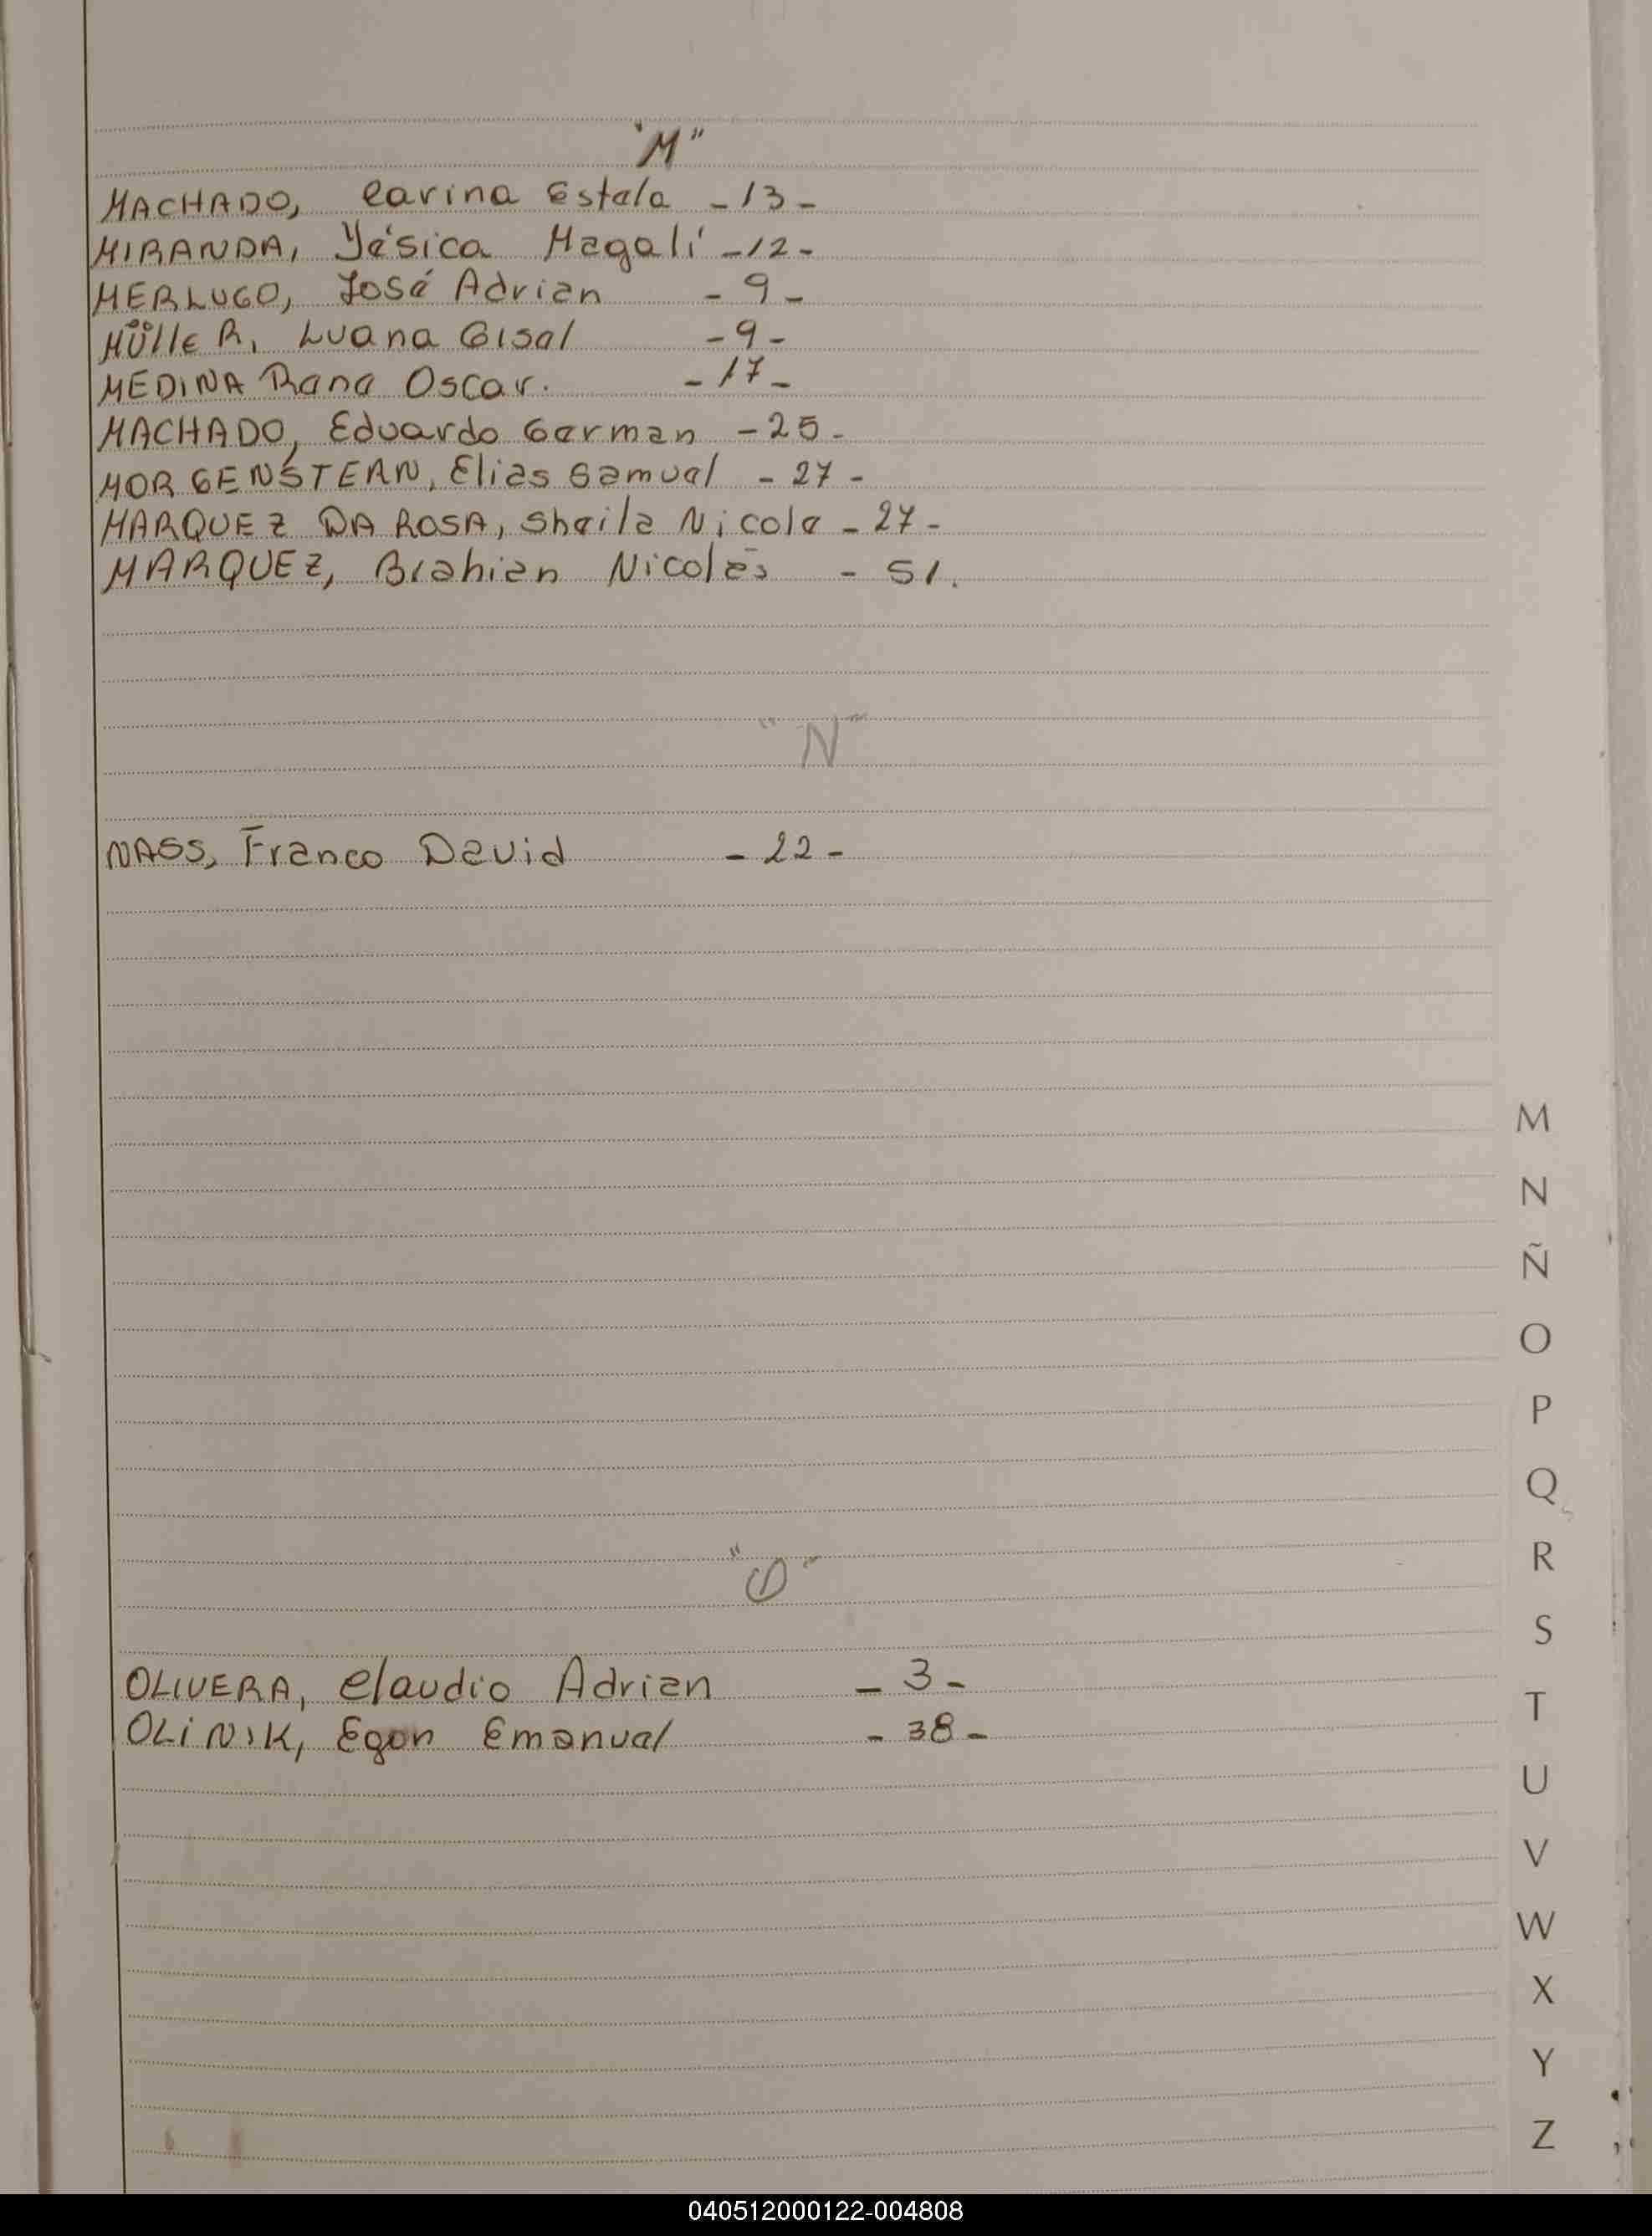 "M"
MACHADO, Carina Estela - 13 -
MIRANDA, Yésica Magalí - 12 -
MERLUGO, José Adrian - 9 -
MÜlleR, Luana Gisel - 9 -
MEDINA Rene Oscar. - 17 -
MACHADO, Eduardo German - 25 -
MORGENSTERN, Elias Samuel - 27 -
MARQUEZ DA ROSA, Sheila Nicole - 27 -
MARQUEZ, Brahian Nicolás - 51.
"N"
NASS, Franco David - 22 -
"O"
OLIVERA, Claudio Adrian - 3 -
OLiNiK, Egon Emanuel - 38 -
M
N
Ñ
O
P
Q
R
S
T
U
V
W
X
Y
Z
040512000122-004808